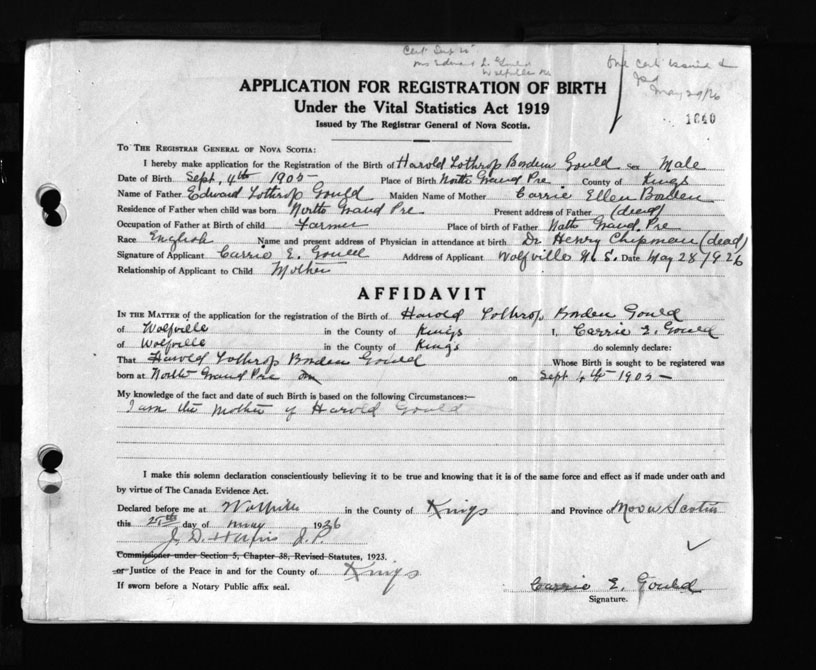 Cert
Mrs Edward L. Gould
Wolfville N.S.
One Cert Issued
May 29/26
APPLICATION FOR REGISTRATION OF BIRTH
Under the Vital Statistics Act 1919
Issued by The Registrar General of Nova Scotia.
1640
TO THE REGISTRAR GENERAL OF NOVA SCOTIA:
I hereby make application for the Registration of the Birth of Harold Lothrop Borden Gould Sex Male
Date of Birth Sept. 4th 1905 Place of Birth North Grand Pre County of Kings
Name of Father Edward Lothrop Gould Maiden Name of Mother Carrie Ellen Borden
Residence of Father when child was born North Grand Pre Present address of Father (dead)
Occupation of Father at Birth of child Farmer Place of birth of Father North Grand Pre
Race English Name and present address of Physician in attendance at birth Dr Henry Chipman (dead)
Signature of Applicant Carrie E. Gould Address of Applicant Wolfville N. S. Date May 28 1926
Relationship of Applicant to Child Mother
AFFIDAVIT
IN THE MATTER of the application for the registration of the Birth of Harold Lothrop Borden Gould
of Wolfville in the County of Kings I, Carrie E. Gould
of Wolfville in the County of Kings do solemnly declare:
That Harold Lothrop Borden Gould Whose Birth is sought to be registered was
born at North Grand Pre on Sept 4th 1905
My knowledge of the fact and date of such Birth is based on the following Circumstances:—
I am the mother of Harold Gould
I make this solemn declaration conscientiously believing it to be true and knowing that it is of the same force and effect as if made under oath and
by virtue of The Canada Evidence Act.
Declared before me at Wolfville in the County of Kings and Province of Nova Scotia
this 28th day of May 1926
J. D. Harris J.P.
Commissioner under Section 5, Chapter 38, Revised Statutes, 1923.
or Justice of the Peace in and for the County of Kings
If sworn before a Notary Public affix seal.
Carrie E. Gould
Signature.